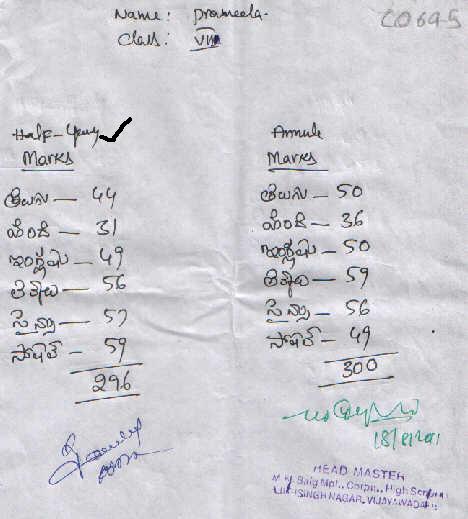 Name: Prameela.
CO 69-5
Class: VIII
Half-Yearly
Marks
తెలుగు — 44
హిందీ — 31
ఇంగ్లీషు — 49
లెక్కలు — 56
సైన్సు — 57
సోషల్ — 59
296
Annule
Marks
తెలుగు — 50
హిందీ — 36
ఇంగ్లీషు — 50
లెక్కలు — 59
సైన్సు — 56
సోషల్ — 49
300
HEAD MASTER
Baig Mpl., Corpn., High School
SINGH NAGAR, VIJAYAWADA